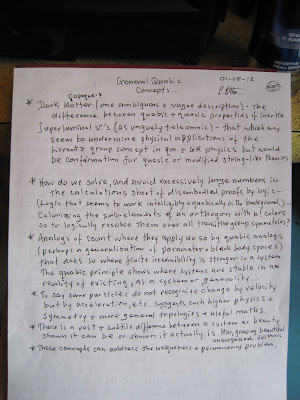 General Quabic
Concepts...
01-08-12
* Dark Matter (one ambiguous & vague description) - The
difference between quabic & quasic properties of inertia
Superluminal v's (as vaguely teleomnic) - that which may
seem to undermine physical applications of the
Lorentz group concept in qm & GR physics but would
be confirmation for quasic or modified string-like theories
* How do we solve, and avoid excessively large numbers in
the calculations short of disembodied proofs by logic -
(Logic that seems to work intelligibly aquabically in the background.)
Colorizing the sub-elements of an orthogon with n! colors
so to logically resolve them over all transitive group symmetries?
* Analogs of count where they apply do so by quabic analogs
(perhaps a generalization & parameter & black body spaces)
that does so where finite irreducibility is stronger in a system.
The quabic principle shows where systems are stable in an
reality of existing, as a system or generality.
* To say some particles do not recognize change by velocity
but by acceleration, etc. suggests such higher physics &
symmetry & more general topologies & useful maths.
* There is a vast & subtile difference between a system as beauty
shown it can be or shown it actually is. Also, growing beautiful
unsurpassed systems
* These concepts can address the uniqueness & permanency problem.